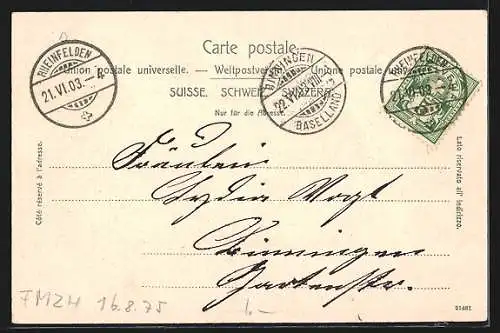 Carte postale.
Union postale universelle. — Weltpostverein — Unione postale universale
SUISSE. SCHWEIZ. SVIZZERA.
Nur für die Adresse.
RHEINFELDEN
21.VI.03.–4
BINNINGEN
22.VI.
BASELLAND
RHEINFELDEN
21.VI.03
Côté réservé à l'adresse.
Lato riservato all' indirizzo.
Fräulein
Lydia Vogt
Binningen
Gartenstr.
FMZH 16.8.75
1.–